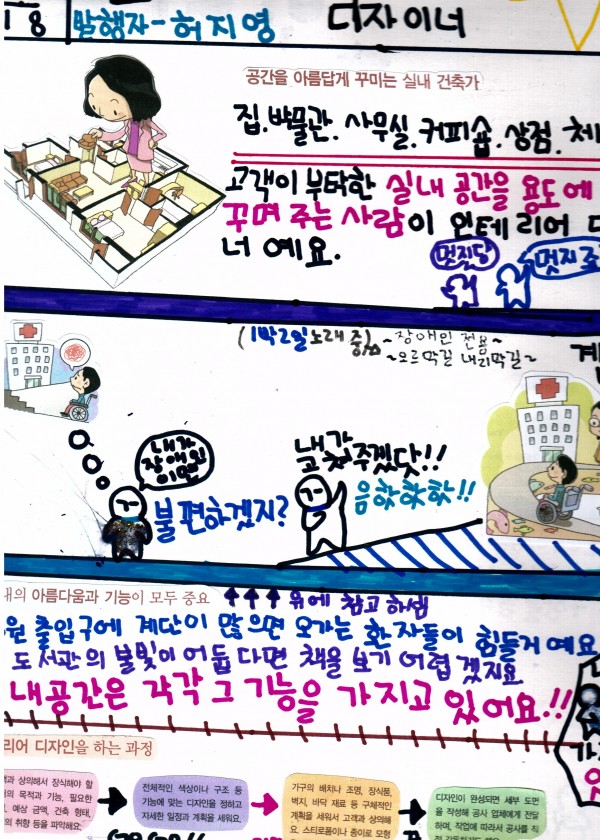 18 발행자-허지영 디자이너
공간을 아름답게 꾸미는 실내 건축가
집. 박물관. 사무실. 커피숍. 상점. 체
고객이 부탁한 실내 공간을 용도에
꾸며 주는 사람이 인테리어 디
너 예요.
멋찐당
멋지죠
(1박2일노래 중) ~장애인 전용~
~오르막길 내리막길~
내가
장애인
이면
불편하겠지?
내가
고쳐주겠닷!!
음핫핫핫!!
내의 아름다움과 기능이 모두 중요 ↑↑↑ 위에 참고 하셈
원 출입구에 계단이 많으면 오가는 환자들이 힘들거 예요
도서관의 불빛이 어둡다면 책을 보기 어렵겠지요
내공간은 각각 그 기능을 가지고 있어요.!!
리어 디자인을 하는 과정
객과 상의해서 장식해야 할
의 목적과 기능, 필요한
, 예상 금액, 건축 형태,
의 취향 등을 파악해요.
전체적인 색상이나 구조 등
기능에 맞는 디자인을 정하고
자세한 일정과 계획을 세워요.
가구의 배치나 조명, 장식품,
벽지, 바닥 재료 등 구체적인
계획을 세워서 고객과 상의해
요. 스티로폼이나 종이로 모형
디자인이 완성되면 세부 도면
을 작성해 공사 업체에게 전달
하며, 작업에 따라서 공사를 직